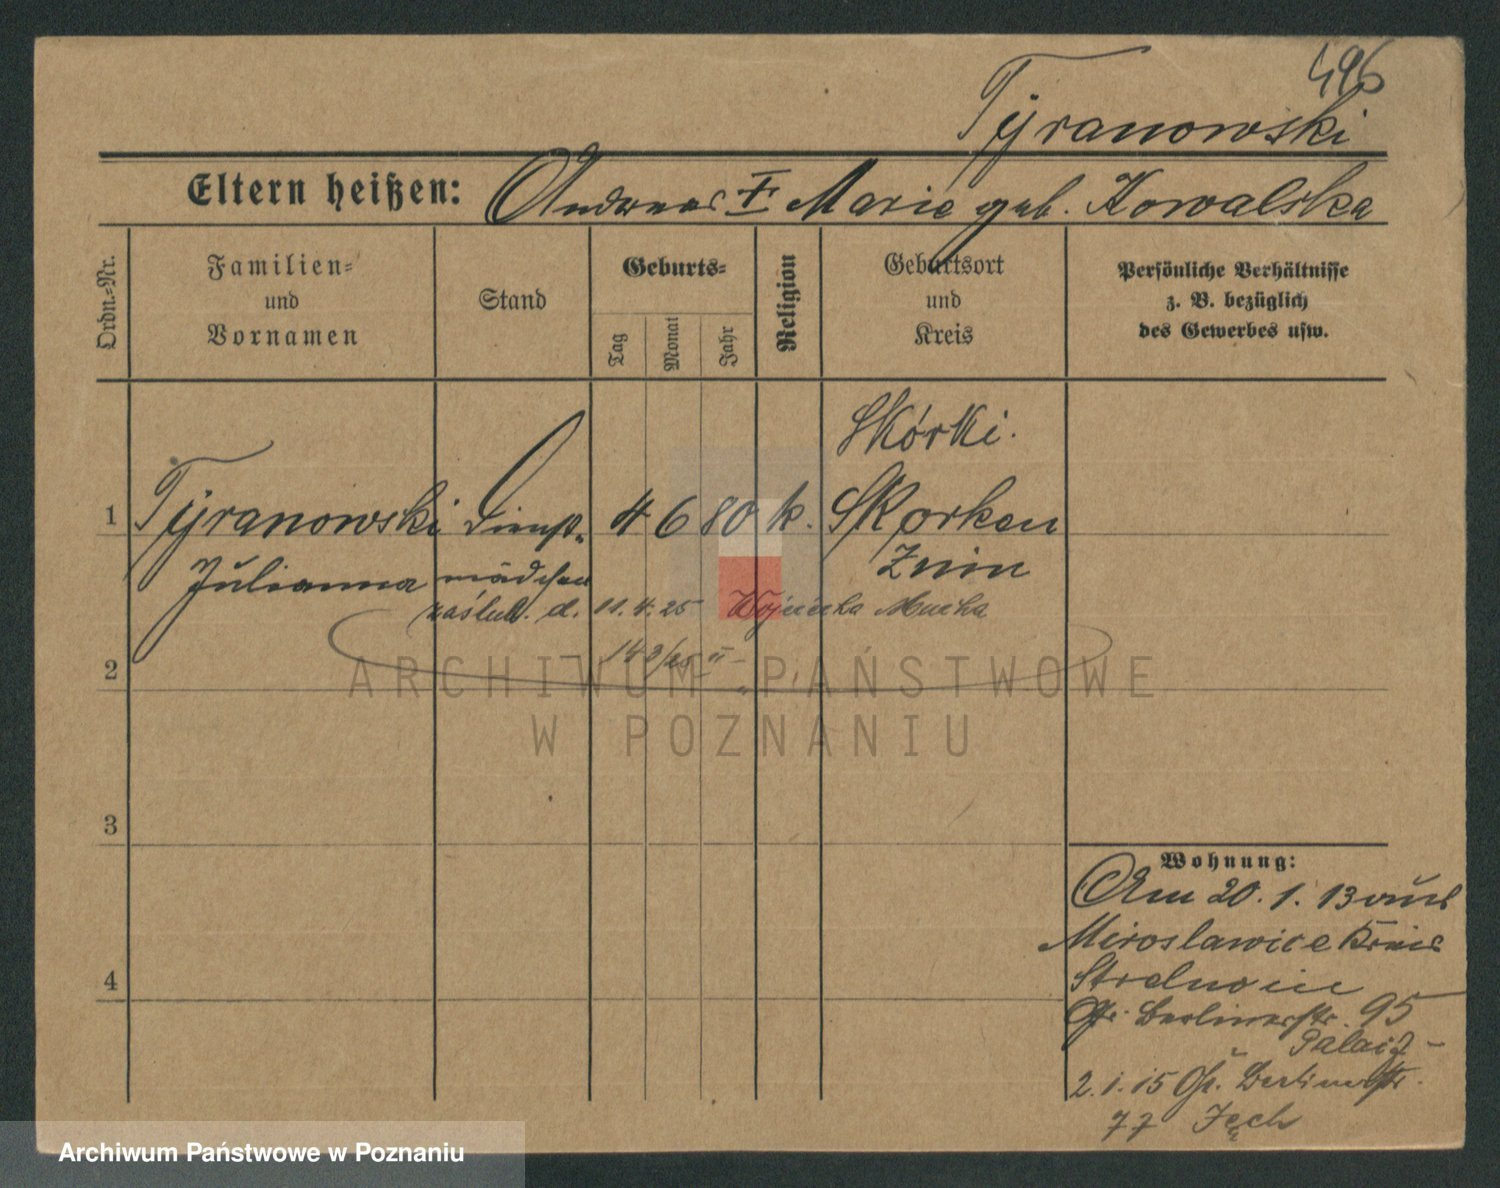 496
Tyranowski
Eltern heißen: Andreas † Marie geb. Kowalska
Ordn.=Nr.
Familien=
und
Vornamen
Stand
Geburts=
Tag
Monat
Jahr
Religion
Geburtsort
und
Kreis
Persönliche Verhältnisse
z. B. bezüglich
des Gewerbes usw.
Skórki.
1 Tyranowski Dienst= 4 6 80 k. Skorken
Julianna mädchen Znin
zaślub. d. 11.4.25 Wojciecha Mucha
148/25 II
2
ARCHIWUM PAŃSTWOWE
W POZNANIU
3
4
Wohnung:
Am 20.1.13 aus
Miroslawice Kreis
Strelno in
Gr. Berlinerstr. 95
2.1.15 Gr. Berlinerstr.
77
Archiwum Państwowe w Poznaniu